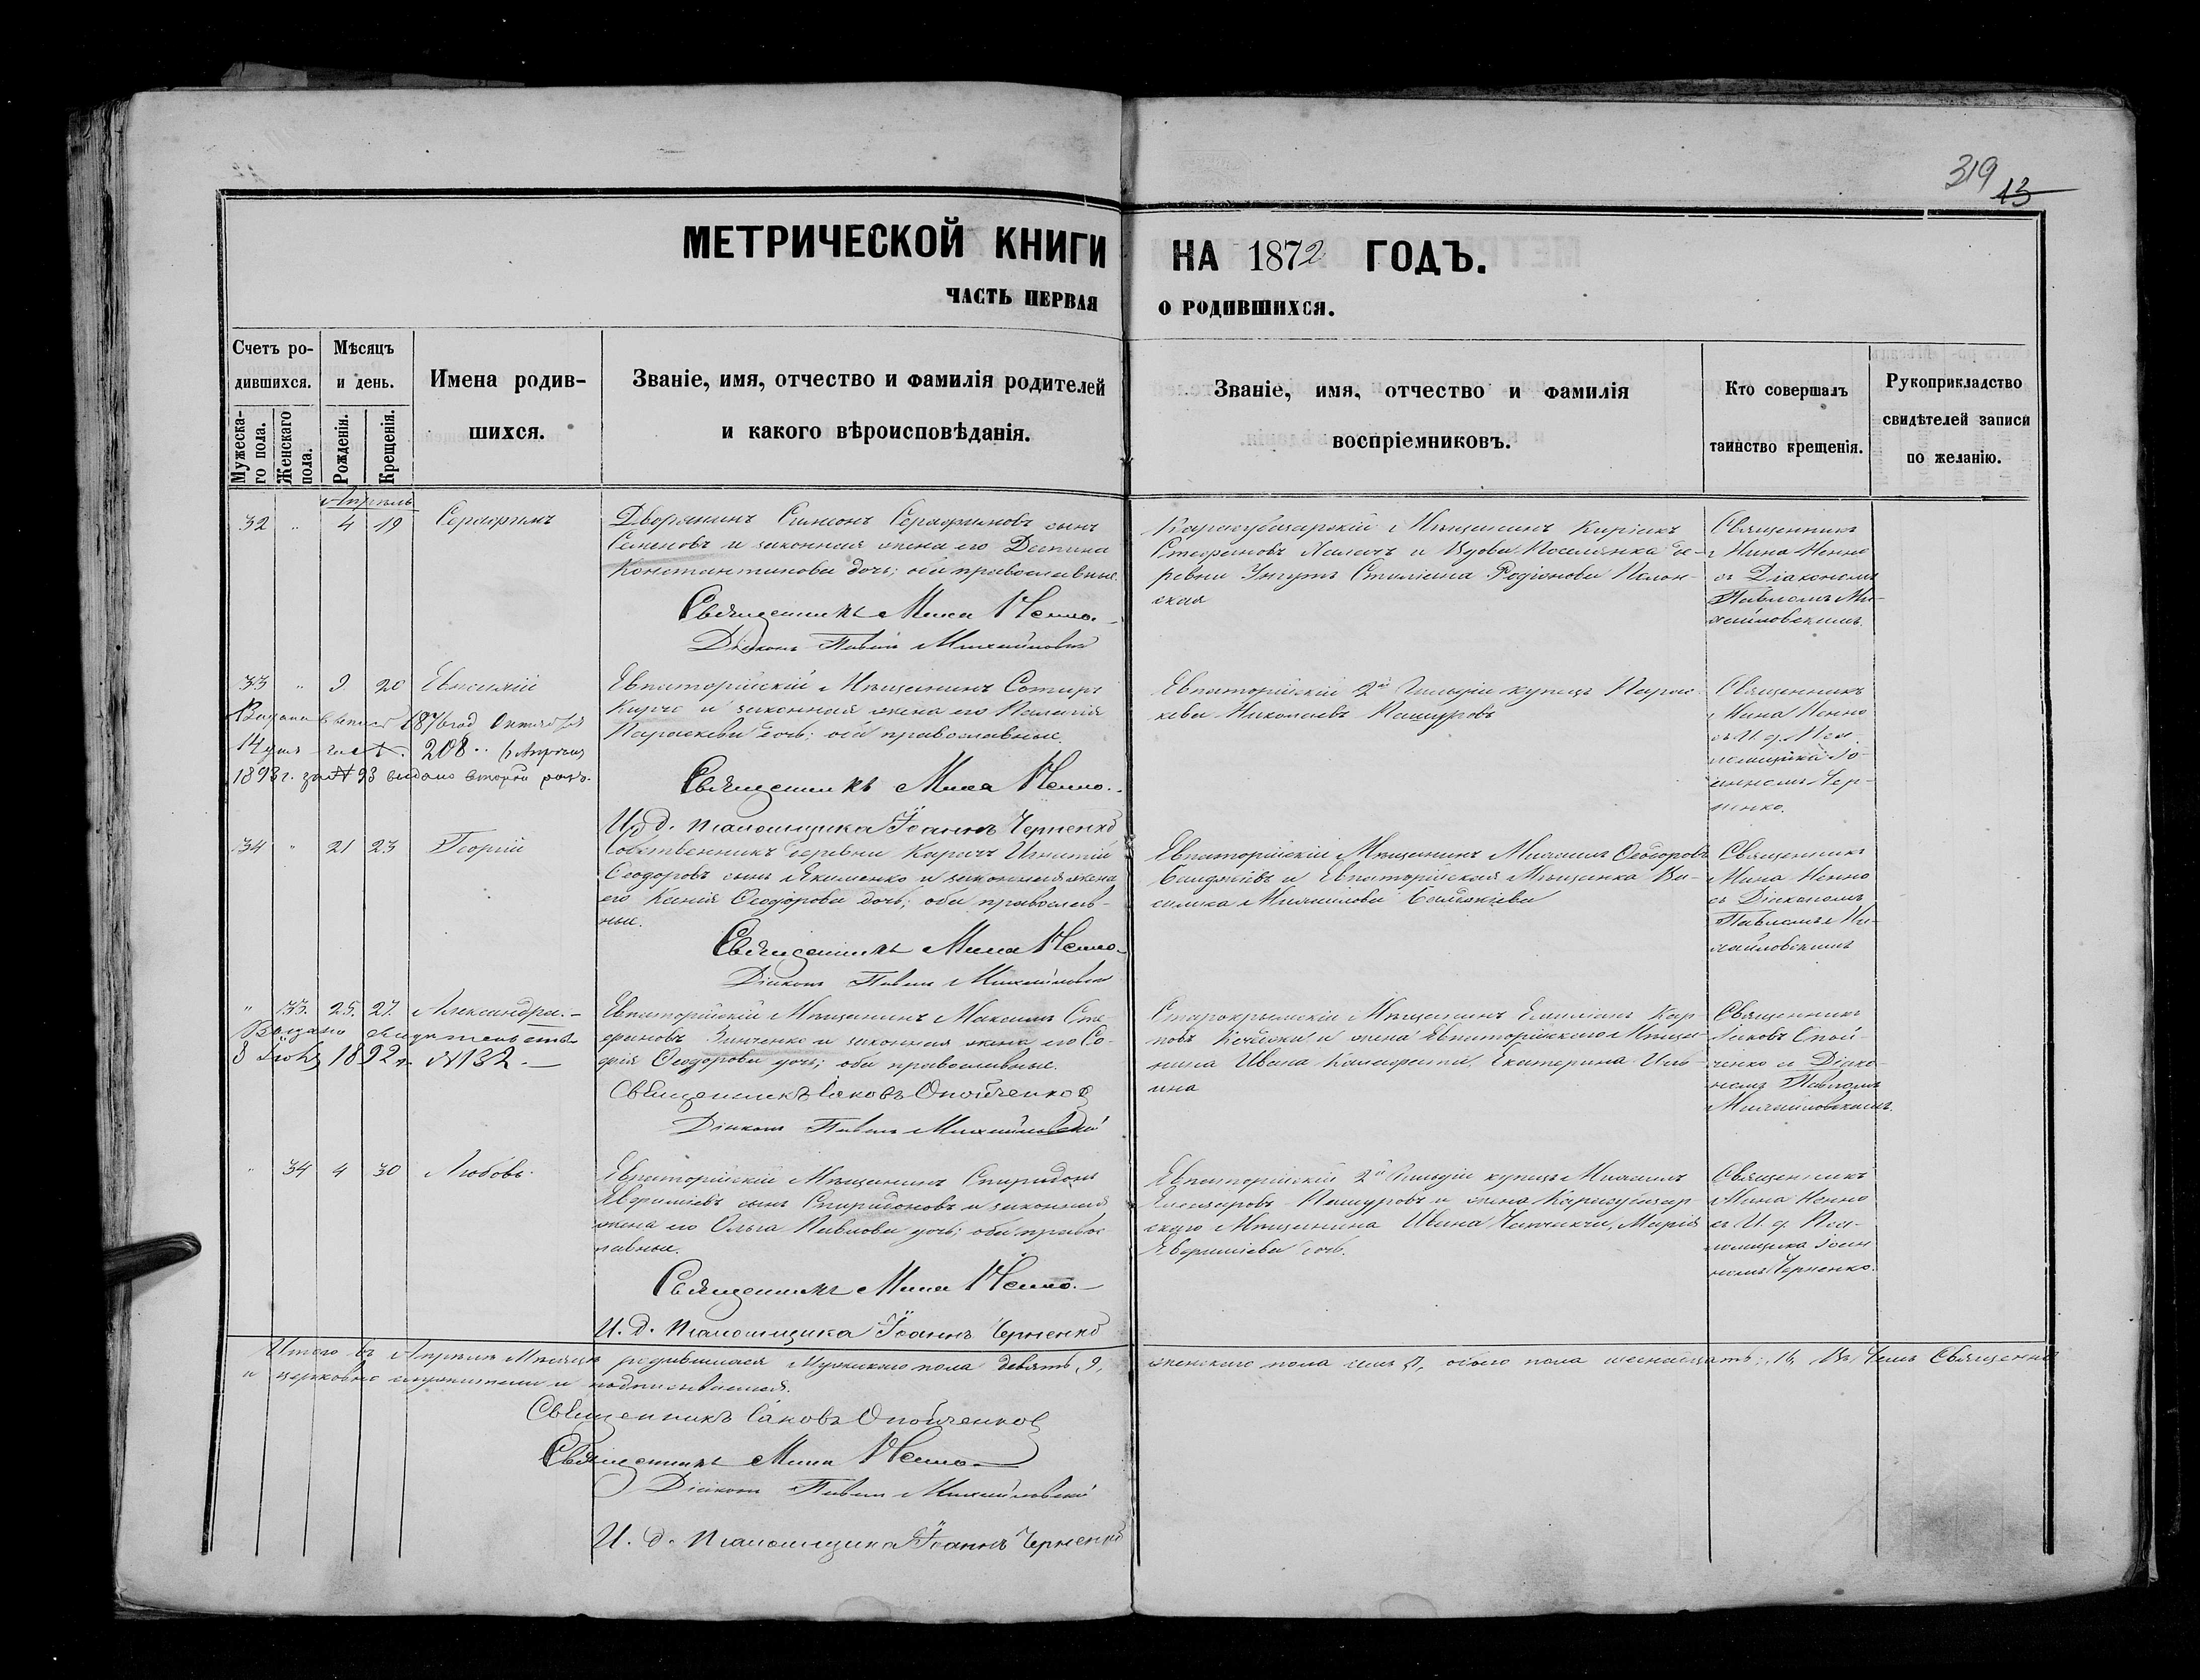 319 13
МЕТРИЧЕСКОЙ КНИГИ НА 1872 ГОДЪ.
ЧАСТЬ ПЕРВАЯ О РОДИВШИХСЯ.
Счетъ ро-
дившихся.
Мужеска-
го пола.
Женскаго
пола.
Мѣсяцъ
и день.
Рожденія.
Крещенія.
Имена родив-
шихся.
Званіе, имя, отчество и фамилія родителей
и какого вѣроисповѣданія.
Званіе, имя, отчество и фамилія
воспріемниковъ.
Кто совершалъ
таинство крещенія.
Рукоприкладство
свидѣтелей записи
по желанію.
Апрѣль
32 " 4 19 Серафимъ
Дворянинъ Симеонъ Серафимовъ сынъ
Семеновъ и законная жена его Деспина
Константинова дочь; оба православные.
Священникъ Мина Ненно.
Діаконъ Павелъ Михайловскій
Карасубазарскій Мѣщанинъ Киріакъ
Стефановъ и Вдова Поселянка де-
ревни Стиліана Родіонова
ская
Священникъ
Мина Ненно
съ Діакономъ
Павломъ Ми-
хайловскимъ.
33 " 9 20 Евгеній
1876 год Октября
14 дня 208. Апрѣля
1893 г. за № 93 выдано второй разъ.
Евпаторійскій Мѣщанинъ Сотиръ
и законная жена его Пелагія
Параскева дочь; оба православные.
Священникъ Мина Ненно.
И. д. псаломщика Іоаннъ Черненко
Евпаторійскій 2й Гильдіи купецъ Парас-
кева Николаевъ Пашуровъ
Священникъ
Мина Ненно
съ И. д. Пса-
ломщика Іо-
анномъ Чер-
ненко.
34 " 21 23 Георгій
Собственникъ деревни Игнатій
Ѳеодоровъ сынъ Якименко и законная жена
его Ксенія Ѳеодорова дочь; оба православ-
ные.
Священникъ Мина Ненно
Діаконъ Павелъ Михайловскій
Евпаторійскій Мѣщанинъ Михаилъ Ѳеодоровъ
и Евпаторійская Мѣщанка Ва-
силика Михайлова
Священникъ
Мина Ненно
съ Діакономъ
Павломъ Ми-
хайловскимъ
" 33. 25. 27. Александра.
Выдано свидетельство
3 Іюля 1892 г. № 132.
Евпаторійскій Мѣщанинъ Максимъ Сте-
фановъ Зинченко и законная жена его Со-
фія Ѳеодорова дочь; оба православные.
Священникъ Іаковъ Опойченко
Діаконъ Павелъ Михайловскій
Старокрымскій Мѣщанинъ Емиліанъ Кар-
повъ и жена Евпаторійскаго Мѣща-
нина Ивана Екатерина Иль-
ина
Священникъ
Іаковъ Опой-
ченко и Діако-
номъ Павломъ
Михайловскимъ.
" 34 4 30 Любовь.
Евпаторійскій Мѣщанинъ Спиридонъ
сынъ Спиридоновъ и законная
жена его Ольга Павлова дочь; оба правос-
лавные.
Священникъ Мина Ненно.
И. д. псаломщика Іоаннъ Черненко
Евпаторійскій 2й Гильдіи купецъ Михаилъ
Пашуровъ и жена Карасубазар-
скаго Мѣщанина Ивана Марія
дочь.
Священникъ
Мина Ненно
съ И. д. Пса-
ломщика Іоан-
номъ Черненко.
Итого въ Апрѣлѣ Мѣсяцѣ родившихся Мужскаго пола девять, 9, женскаго пола семь 7, обоего пола шеснадцать, 16, Въ чемъ Священно
и церковно служители и подписываемся.
Священникъ Іаковъ Опойченко
Священникъ Мина Ненно
Діаконъ Павелъ Михайловскій
И. д. псаломщика Іоаннъ Черненко